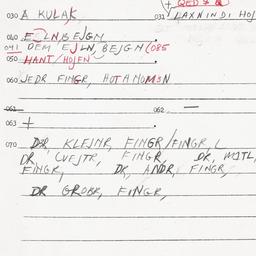 030 A KULAK
031 LAXNINDI HOJ
040 EJLN, BEJGN
041 DEM EJLN, BEJGN (085
050 HANT/HOJEN
060 JEDR FINGR, HOTAMOMSN
061
062 —
063 +
070 DR KLEJNR, FINGR/FINGR, L
DR, FINGR, DR, MJTL,
FINGR, DR, ANDR, FINGR,
DR GROBR, FINGR,